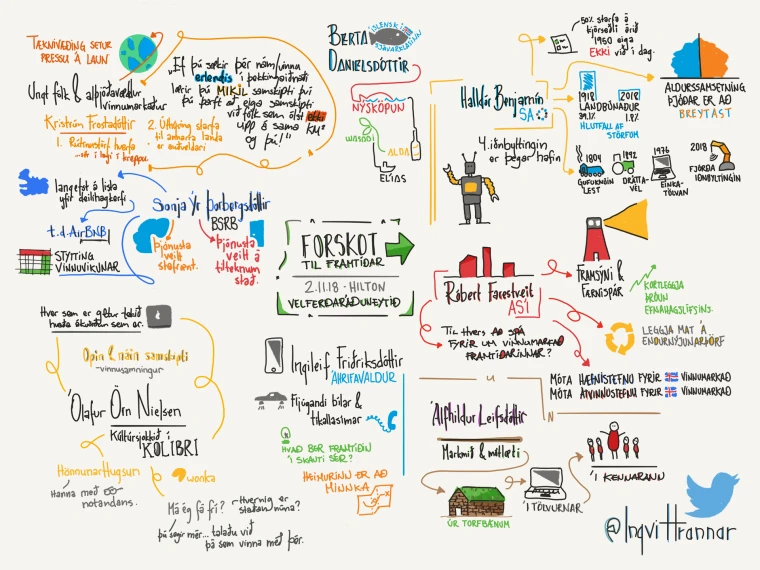 TÆKNIVÆÐING SETUR
PRESSU Á LAUN
Ungt fólk & alþjóðavæddur
vinnumarkaður
Kristrún Frostadóttir
1. Rútínustörf hverfa
...oft í lagi í kreppu
2. Úthýsing starfa
til annarra landa
er auðveldari
"Ef þú sækir þér nám/vinnu
erlendis í þekkingariðnaði
lærir þú MIKIL samskipti því
þú þarft að eiga samskipti
við fólk sem ólst ekki
upp á sama KM²
og þú!"
BERTA
DANIELSDÓTTIR
ÍSLENSKI
SJÁVARKLASINN
NÝSKÖPUN
WASABI
ALDA
ELÍAS
50% starfa á
kjörseðli árið
1960 eiga
EKKI við í dag.
Halldór Benjamín
SA
1918
LANDBÚNAÐUR
39.1%
2018
1.8%
HLUTFALL AF
STÖRFUM
ALDURSSAMSETNING
ÞJÓÐAR ER AÐ
BREYTAST
4. iðnbyltingin
er þegar hafin
1804
GUFUKNÚIN
LEST
1892
DRÁTTA-
VÉL
1976
EINKA-
TÖLVAN
2018
FJÓRÐA
IÐNBYLTINGIN
langefst á lista
yfir deilihagkerfi
t.d. AirBNB
STYTTING
VINNUVIKUNAR
Sonja Ýr Þorbergsdóttir
BSRB
Þjónusta
veitt
stafrænt.
Þjónusta
veitt á
tilteknum
stað.
FORSKOT
TIL FRAMTÍÐAR
2.11.18 · HILTON
VELFERÐARÁÐUNEYTIÐ
Róbert Farestveit
ASÍ
Til Hvers AÐ SPÁ
FYRIR UM VINNUMARKAÐ
FRAMTÍÐARINNAR?
FRAMSÝNI &
FÆRNISPÁR
KORTLEGGJA
ÞRÓUN
EFNAHAGSLÍFSINS.
LEGGJA MAT Á
ENDURNÝJUNARÞÖRF
MÓTA HÆFNISTEFNU FYRIR VINNUMARKAÐ
MÓTA ATVINNUSTEFNU FYRIR VINNUMARKAÐ
Hver sem er getur tekið
hvaða ákvörðun sem er.
Opin & náin samskipti
-vinnusamningur
Ólafur Örn Nielsen
Kúltúrsjokkið í
KOLIBRI
HönnunarHugsun
Hanna með
notandans.
wonka
Má ég fá frí?
Hvernig er
staðan núna?
þú segir mér... talaðu við
þá sem vinna með þér.
Ingileif Friðriksdóttir
ÁHRIFAVALDUR
Fljúgandi bílar &
tikallasímar
HVAÐ BER FRAMTÍÐIN
Í SKAUTI SÉR?
HEIMURINN ER AÐ
MINNKA
U
N
Álfhildur Leifsdóttir
Markmið & mætlæti
ÚR TORFBÆNUM
Í TÖLVURNAR
Í KENNARANN
@IngviHrannar